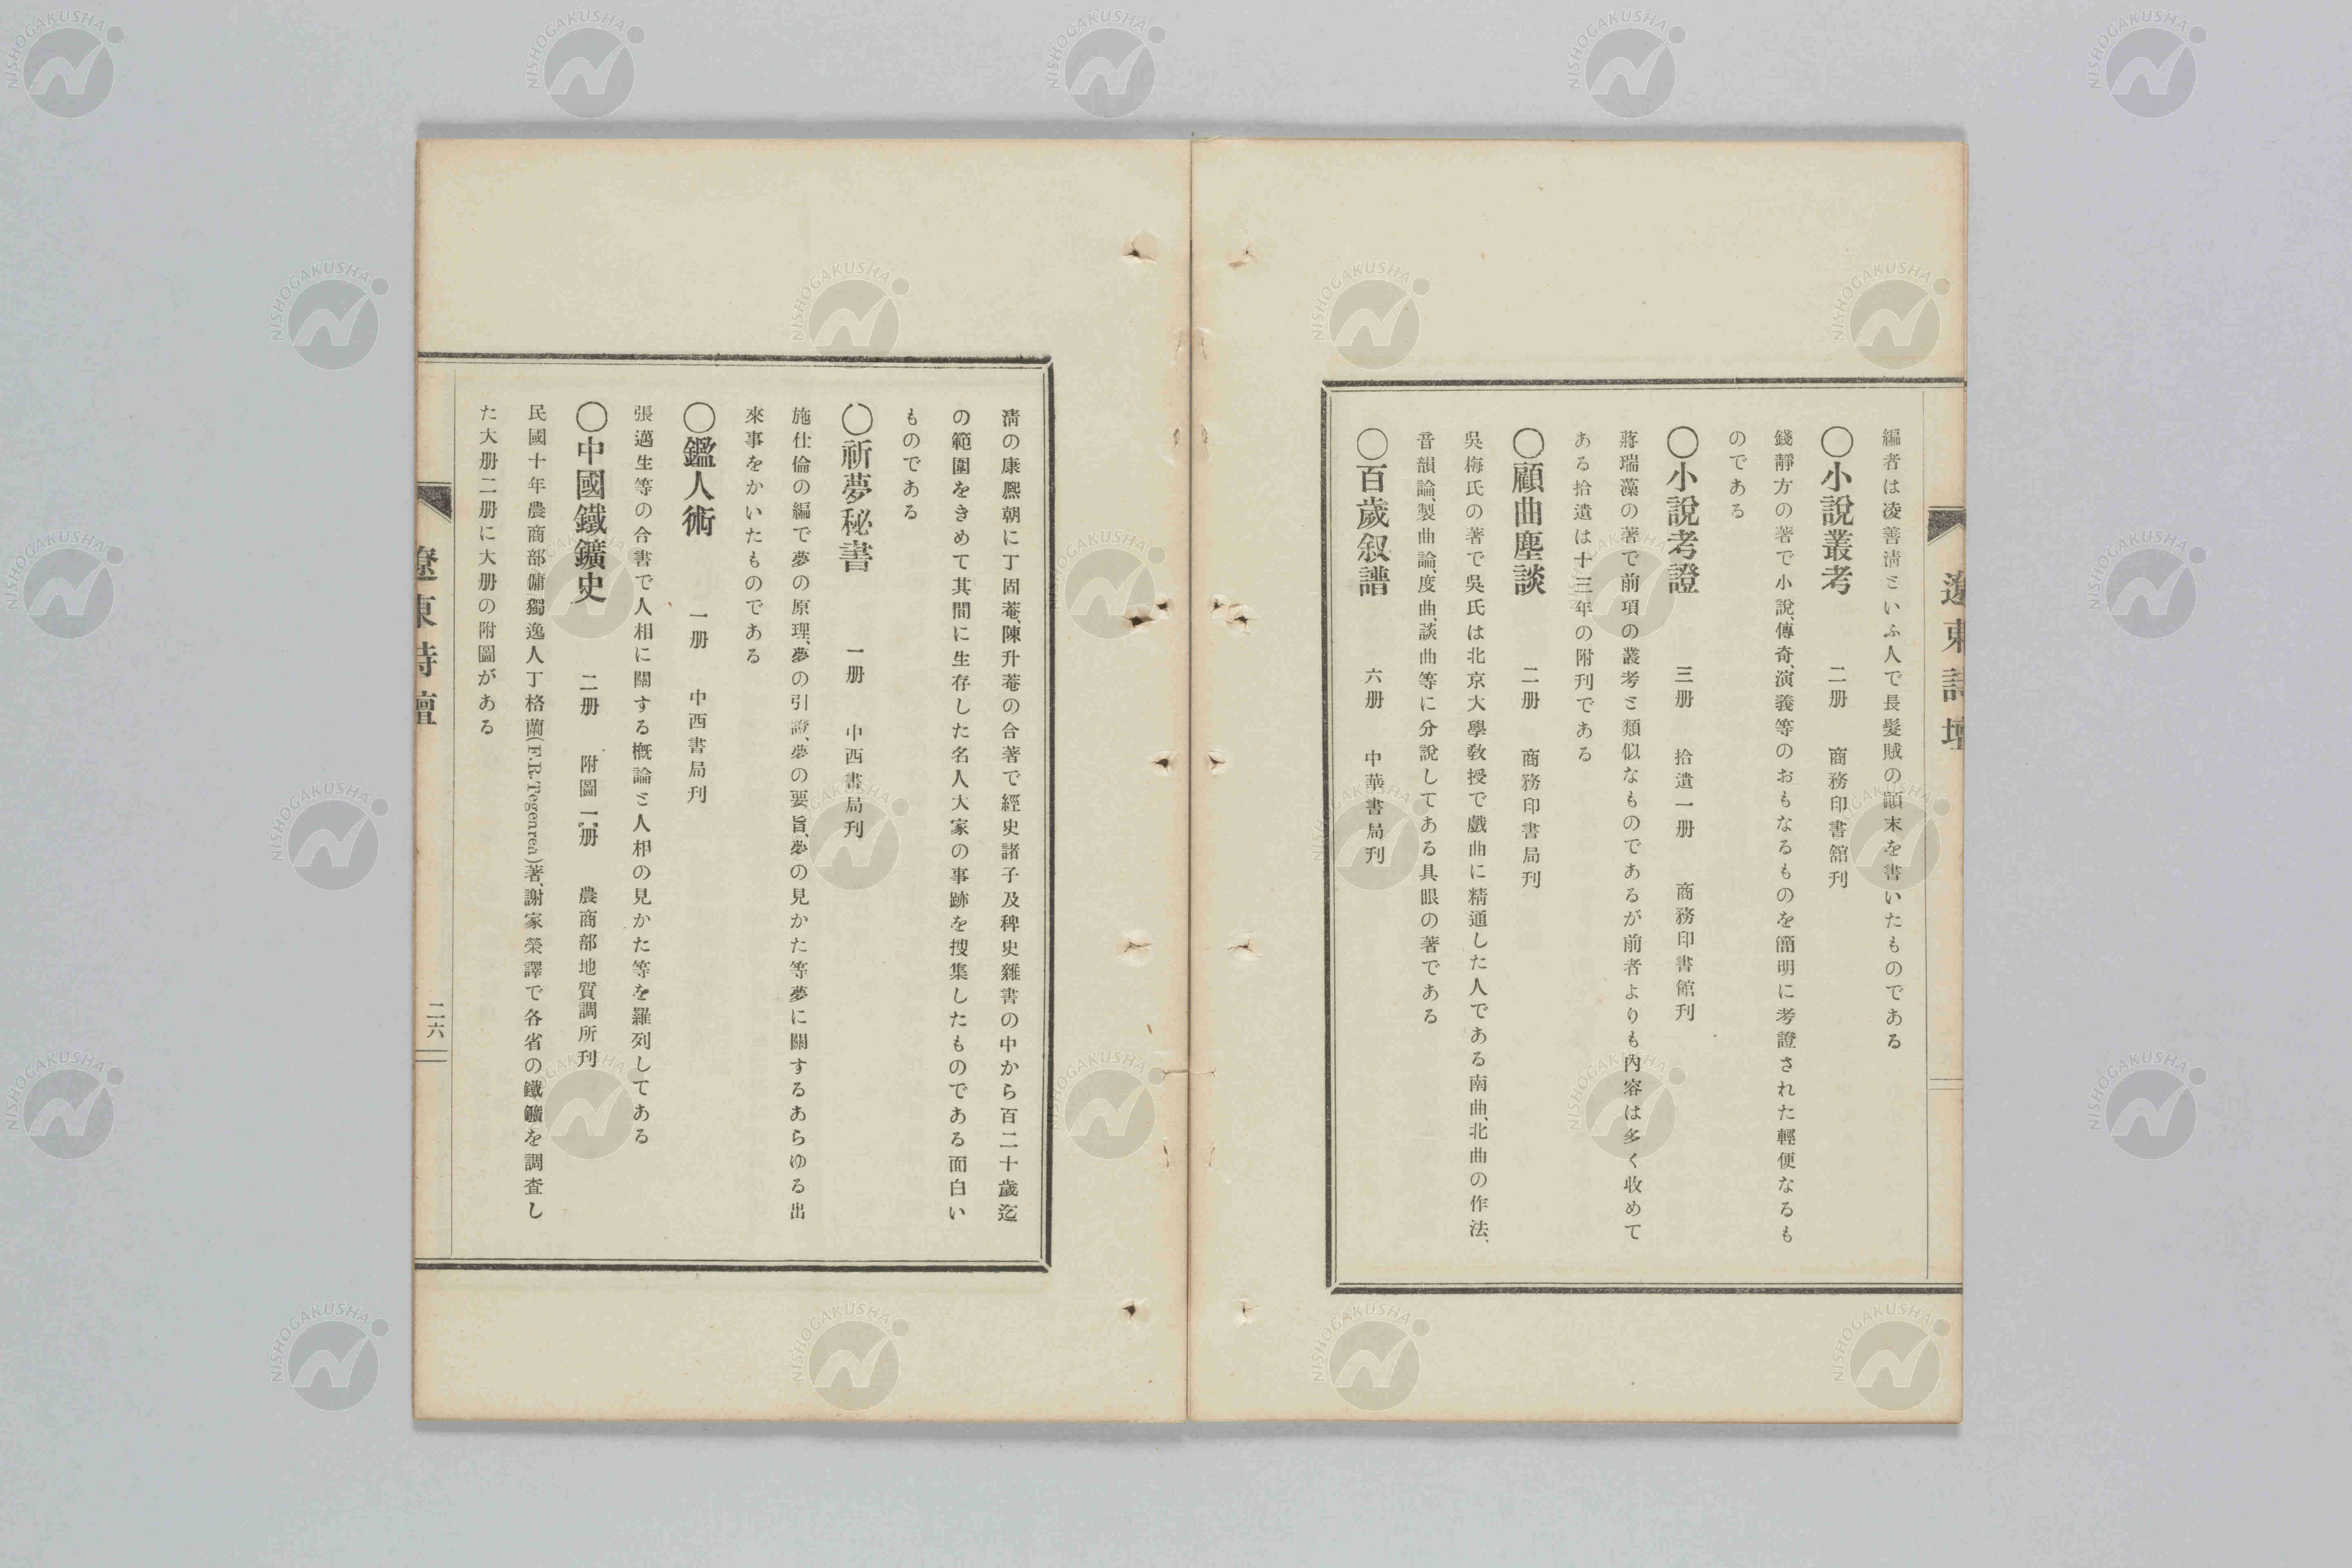 遼東詩壇
編者は凌善淸ミいふ人で長髮賊の顚末を書いたものである
〇小說叢考　二册　商務印書舘刊
錢靜方の著で小說、傳奇、演義等のおもなるものを簡明に考證された輕便なるも
のである
〇小說考證　三册　拾遺一册　商務印書館刊
蔣瑞藻の著で前項の叢考ミ類似なものであるが前者よりも內容は多く收めて
ある拾遺は十三年の附刊である
〇顧曲塵談　二册　商務印書局刊
吳梅氏の著で吳氏は北京大學敎授で戲曲に精通した人である南曲、北曲の作法、
音韻論、製曲論、度曲、談曲等に分說してある具眼の著である
〇百歲叙譜　六册　中華書局刊
淸の康熈朝に丁固菴、陳升菴の合著で經史諸子及稗史雜書の中から百二十歲迄
の範圍をきめて其間に生存した名人大家の事跡を搜集したものである面白い
ものである
〇祈夢秘書　一册　中西書局刊
施仕倫の編で夢の原理、夢の引證、夢の要旨、夢の見かた等夢に關するあらゆる出
來事をかいたものである
〇鑑人術　一册　中西書局刊
張邁生等の合書で人相に關する槪論ミ人相の見かた等を羅列してある
〇中國鐵鑛史　二册　附圖一册　農商部地質調所刊
民國十年農商部傭獨逸人丁格蘭(F.R.Tegenren)著、謝家榮譯で各省の鐵鑛を調査し
た大册二册に大册の附圖がある
遼東詩壇
二六
NISHOGAKUSHA